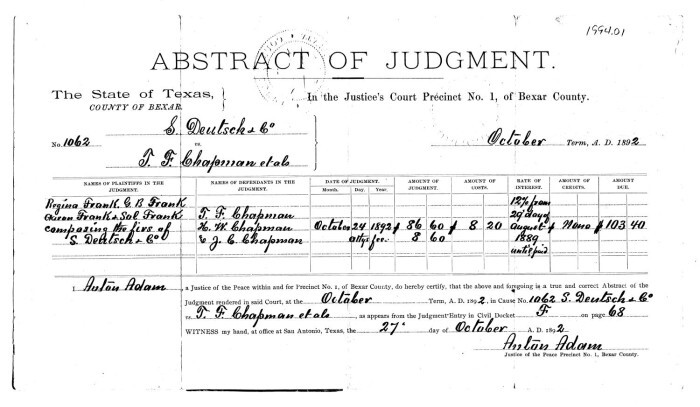 1994.01
ABSTRACT OF JUDGMENT.
The State of Texas,
COUNTY OF BEXAR.
In the Justice's Court Precinct No. 1, of Bexar County.
No. 1062
S. Deutsch & Co
vs.
T. F. Chapman et als
October Term, A. D. 1892
NAMES OF PLAINTIFFS IN THE JUDGMENT. NAMES OF DEFENDANTS IN THE JUDGMENT. DATE OF JUDGMENT. Month. Day. Year. AMOUNT OF JUDGMENT. AMOUNT OF COSTS. RATE OF INTEREST. AMOUNT OF CREDITS. AMOUNT DUE.
Regina Frank, G. B. Frank 12% from
Frank & Sol Frank T. F. Chapman 29 day of
composing the firs of H. W. Chapman October 24 1892 $ 86 60 $ 8 20 august $ None $ 103 40
S. Deutsch & Co & J. C. Chapman attys fee. 8 60 1889
until paid
I, Anton Adam, a Justice of the Peace within and for Precinct No. 1, of Bexar County, do hereby certify, that the above and foregoing is a true and correct Abstract of the
Judgment rendered in said Court, at the October Term, A. D. 1892, in Cause No. 1062 S. Deutsch & Co
vs T. F. Chapman et als, as appears from the Judgment Entry in Civil Docket F on page 68
WITNESS my hand, at office at San Antonio, Texas, the 27' day of October A. D. 1892
Anton Adam
Justice of the Peace Precinct No. 1, Bexar County.